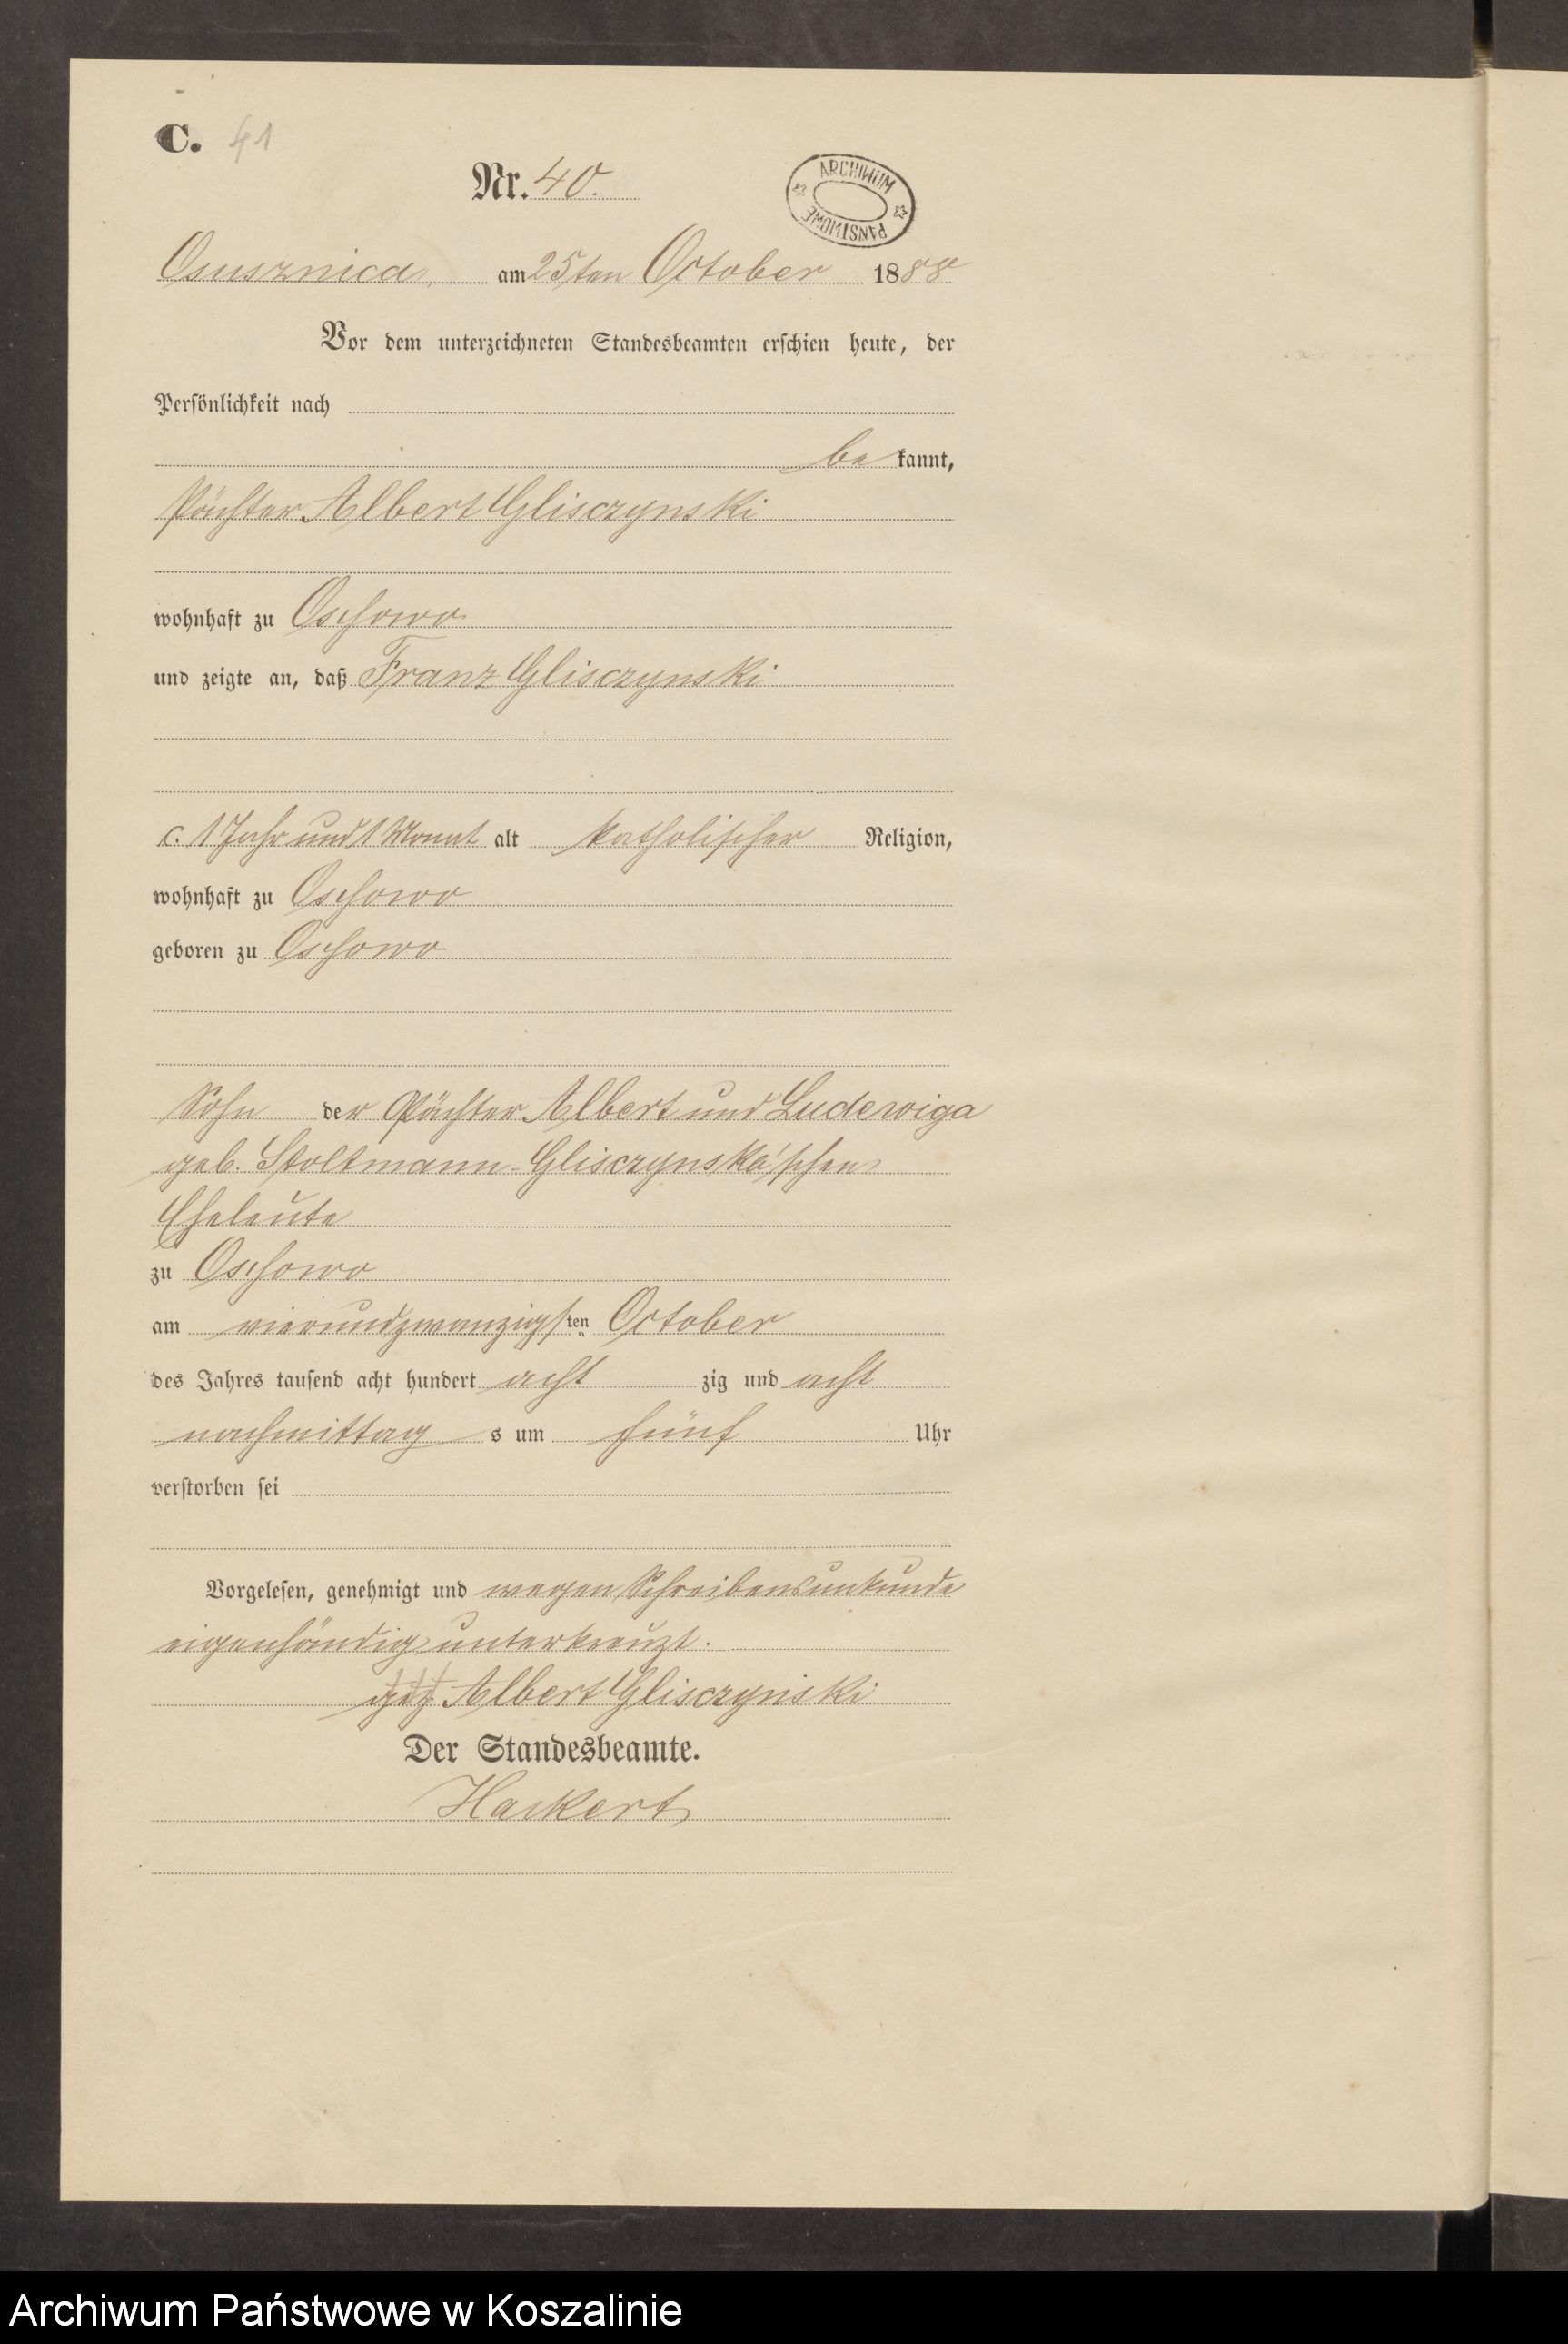 C. 41
Nr. 40.
ARCHIWUM PAŃSTWOWE
Osusznica, am 25ten October 1888
Vor dem unterzeichneten Standesbeamten erschien heute, der
Persönlichkeit nach
be kannt,
Pächter Albert Glisczynski
wohnhaft zu Oschowo
und zeigte an, daß Franz Glisczynski
c. 1 Jahr und 1 Monat alt katholischer Religion,
wohnhaft zu Oschowo
geboren zu Oschowo
Sohn der Pächter Albert und Ludewiga
geb. Stoltmann-Glisczynska'schen
Eheleute
zu Oschowo
am vierundzwanzigsten October
des Jahres tausend acht hundert acht zig und acht
nachmittag s um fünf Uhr
verstorben sei
Vorgelesen, genehmigt und wegen Schreibensunkunde
eigenhändig unterkreuzt.
+++ Albert Glisczynski
Der Standesbeamte.
Hackert
Archiwum Państwowe w Koszalinie